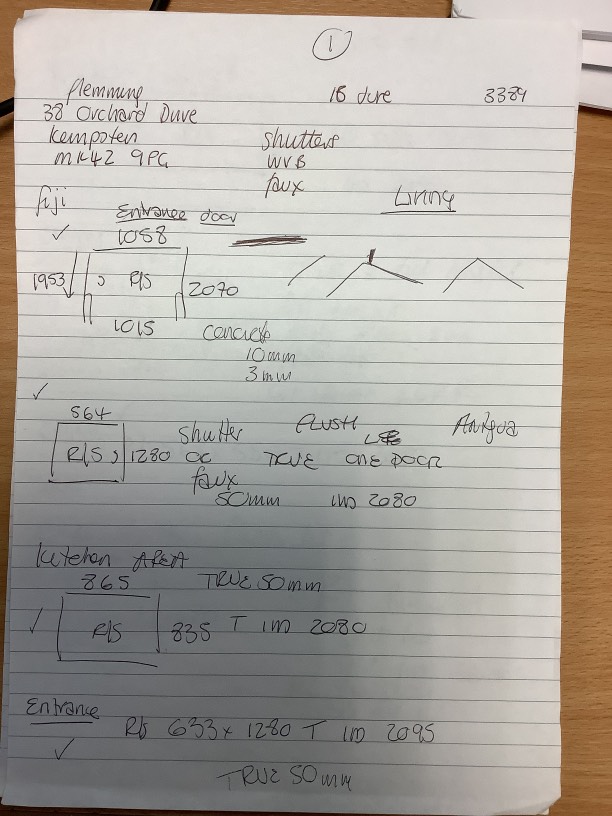 1
Flemming 18 June 3384
38 Orchard Drive
Kempston
MK42 9PG
shutters
WVB
faux
fiji Living
Entrance door
1058
1953 R/S 2070
1015
concrete
10mm
3mm
564
shutter FLUSH Antigua
R/S 1280 OC TRUE ONE DOOR
faux
50mm IMD 2080
kitchen AREA
865 TRUE 50mm
R/S 835 T IMD 2080
Entrance
R/S 633 x 1280 T IMD 2095
TRUE 50mm